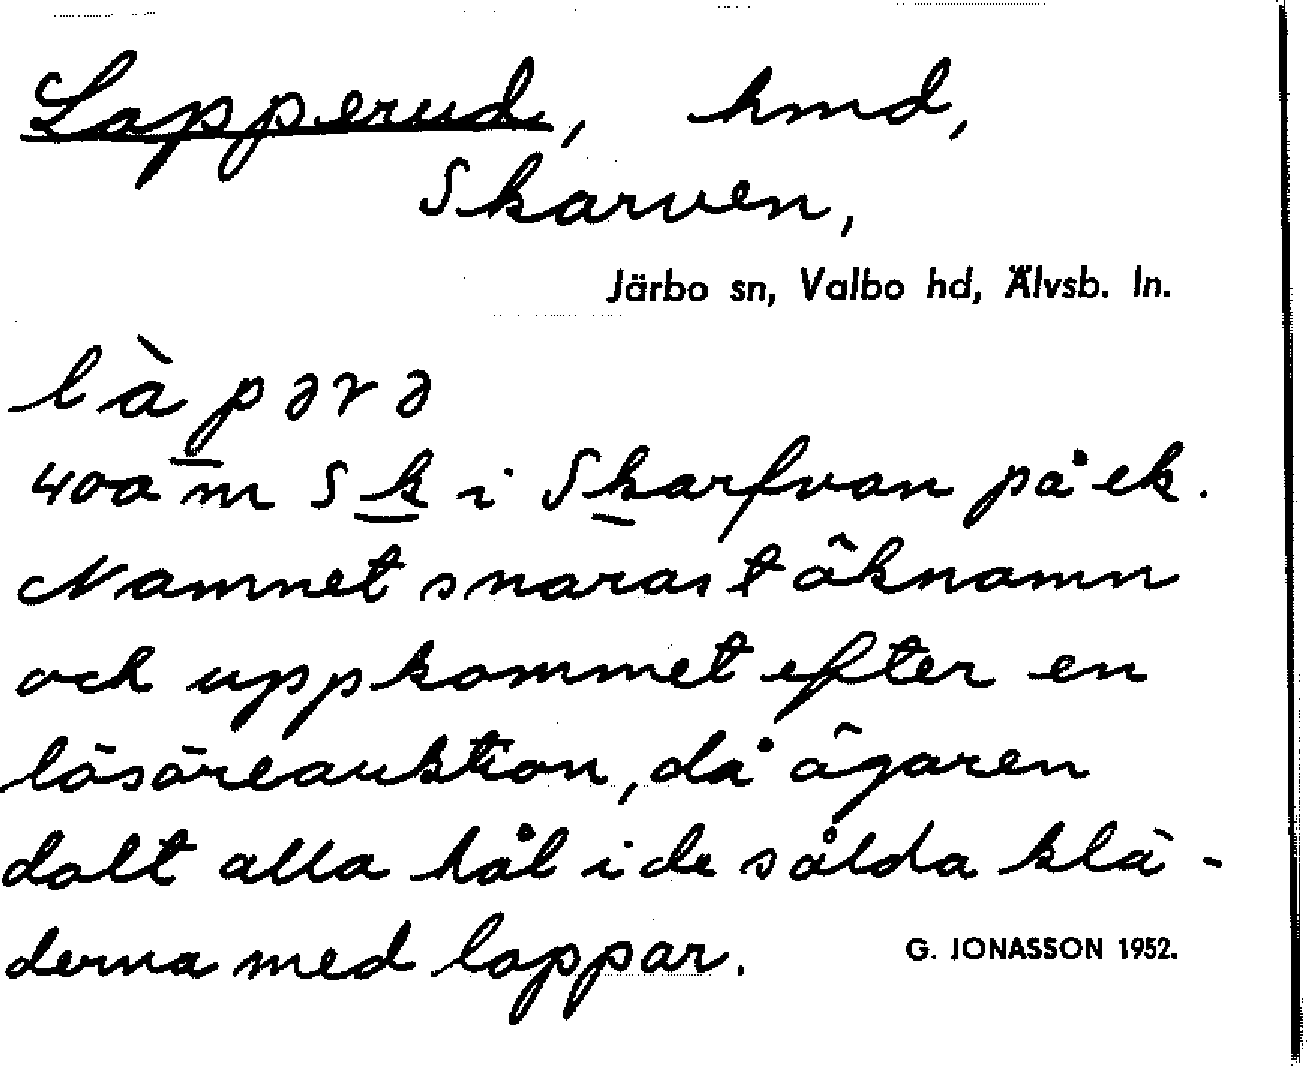 Lapperud, hmd,
Skarven,
Järbo sn, Valbo hd, Älvsb. ln.
làpərə
400 m S k i Skarfvan på ek.
Namnet snarast öknamn
och uppkommet efter en
lösöreauktion, då ägaren
dolt alla hål i de sålda klä-
derna med lappar.
G. JONASSON 1952.